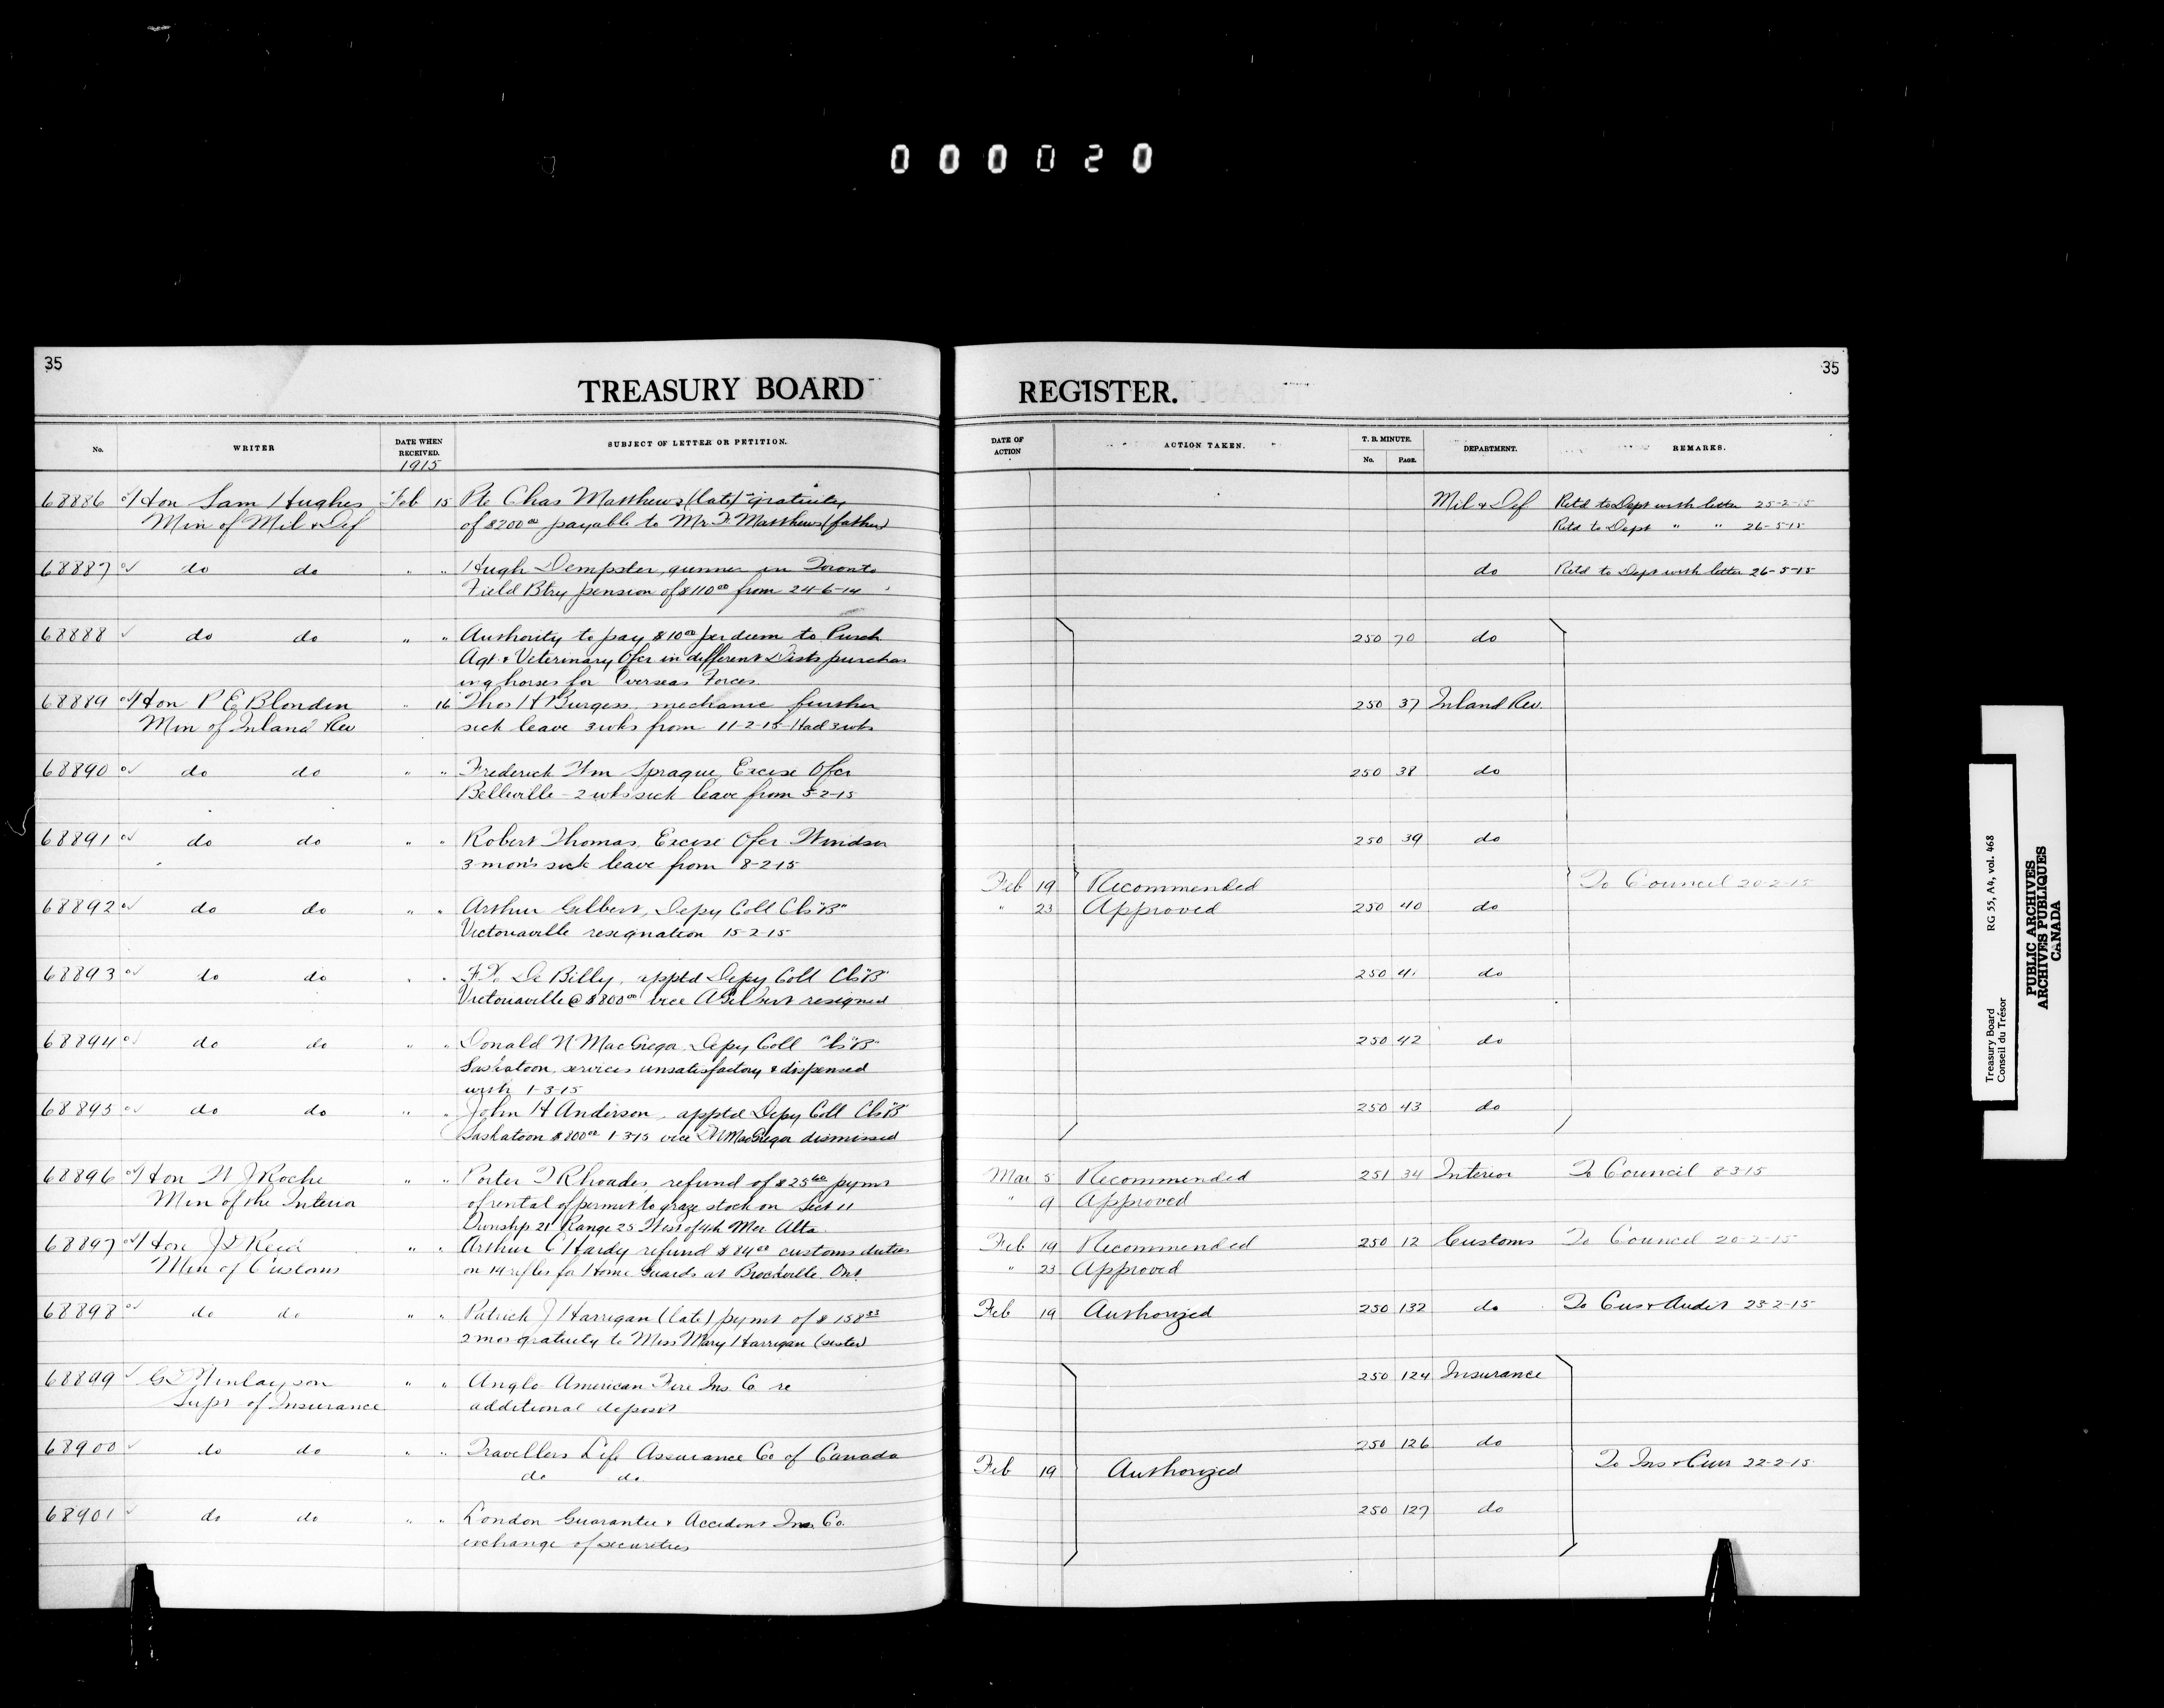 000020
35
TREASURY BOARD
No.
WRITER
DATE WHEN RECEIVED.
1915
SUBJECT OF LETTER OR PETITION.
68886 Hon Sam Hughes Feb 15 Pte Chas Matthews (late) gratuity
Min of Mil & Def of $200 00 payable to Mr F. Matthews (father)
68887 do do " " Hugh Dempster, gunner in Toronto
Field Btry pension of $110 00 from 24-6-14
68888 do do " " Authority to pay $10 00 per diem to Purch
Agt & Veterinary Ofcr in different Dists purchas
ing horses for Overseas Forces
68889 Hon P E Blondin " 16 Thos H Burgess, mechanic further
Min of Inland Rev sick leave 3 wks from 11-2-15 Had 3 wks
68890 do do " " Frederick Wm Sprague, Excise Ofcr
Belleville - 2 wks sick leave from 5-2-15
68891 do do " " Robert Thomas, Excise Ofcr Windsor
3 mon's sick leave from 8-2-15
68892 do do " " Arthur Gilbert, Depy Coll Cls "B"
Victoriaville resignation 15-2-15
68893 do do " " F. X. De Billy, apptd Depy Coll Cls "B"
Victoriaville @ $800 00 vice A Gilbert resigned
68894 do do " " Donald N MacGregor Depy Coll Cls "B"
Saskatoon, services unsatisfactory & dispensed
with 1-3-15
68895 do do " " John H Anderson, apptd Depy Coll Cls "B"
Saskatoon $800 00 1-3-15 vice D N MacGregor dismissed
68896 Hon W J Roche " " Porter T Rhoades refund of $25 60 pymt
Min of the Interior of rental of permit to graze stock on Sect 11
Twnship 21 Range 25 West of 4th Mer Alta
68897 Hon J D Reid " " Arthur C Hardy refund $84 00 customs duties
Min of Customs on 14 rifles for Home Guards at Brockville Ont
68898 do do " " Patrick J Harrigan (late) pymt of $158 33
2 mos gratuity to Miss Mary Harrigan (sister)
68899 G D Finlayson " " Anglo American Fire Ins. Co re
Supt of Insurance additional deposit
68900 do do " " Travellers Life Assurance Co of Canada
do do
68901 do do " " London Guarantee & Accident Ins. Co.
exchange of securities
35
REGISTER.
DATE OF ACTION
ACTION TAKEN.
T. B. MINUTE.
No.
PAGE.
DEPARTMENT.
REMARKS.
Mil & Def Retd to Dept with letter 25-2-15
Retd to Dept " " 26-5-15
do Retd to Dept with letter 26-5-15
250 70 do
250 37 Inland Rev.
250 38 do
250 39 do
Feb 19 Recommended To Council 20-2-15
" 23 Approved 250 40 do
250 41 do
250 42 do
250 43 do
Mar 5 Recommended 251 34 Interior To Council 8-3-15
" 9 Approved
Feb 19 Recommended 250 12 Customs To Council 20-2-15
" 23 Approved
Feb 19 Authorized 250 132 do To Cus & Audit 23-2-15
250 124 Insurance
250 126 do
Feb 19 Authorized To Ins & Curr 22-2-15
250 127 do
Treasury Board RG 55, A4, vol. 468
Conseil du Trésor
PUBLIC ARCHIVES
ARCHIVES PUBLIQUES
CANADA